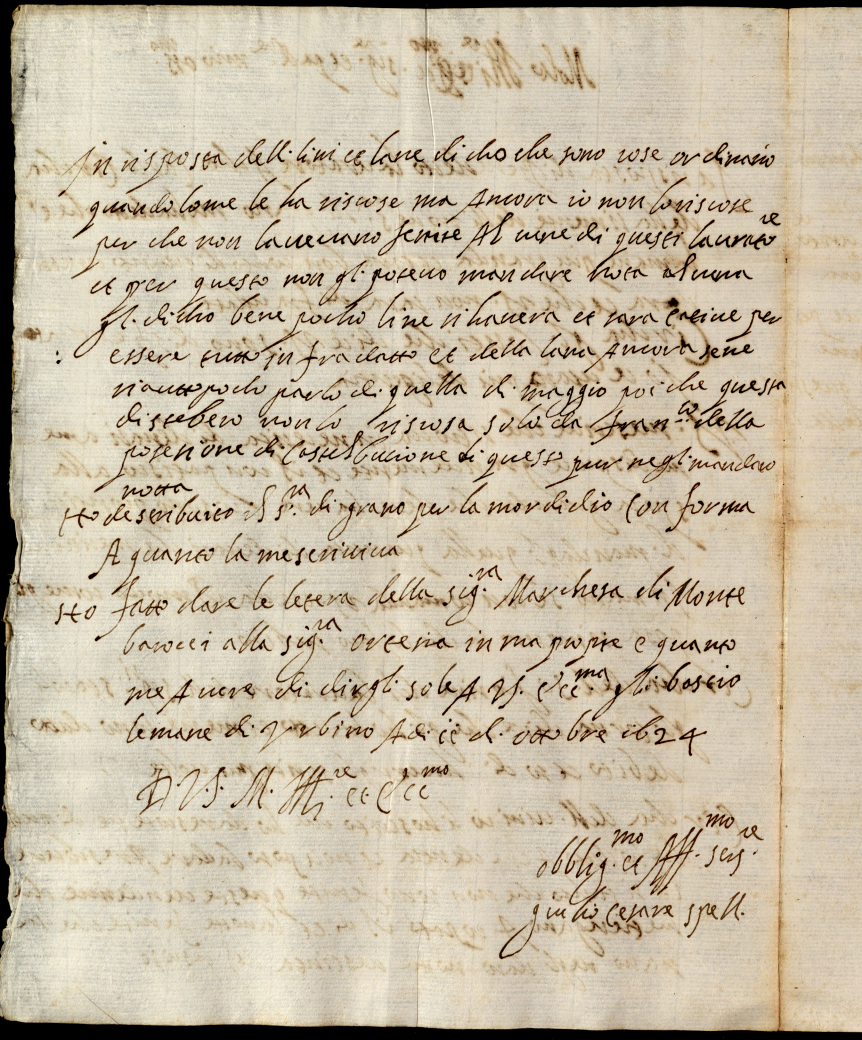 In risposta dell. lini et lane di cho che sono cose ordinario
quando come le ha riscose ma Ancora io non lo riscose
per che non l'avevano fenite Al cune di questi lavrato.re
et per questo non gli poteuo mandare nota alcuna
gl. dicho bene pocho line ri havera et sara catiue per
essere tutto in fradatto et della lana Ancora sene
pocho parlo di quella di maggio poi che questa
di setebero non lo riscosa solo da fran.co della
posesione di Castel bucione di questo pur negli mandaro
notta
sto destribuito il s.ra di grano per la mor di dio Con forma
A quanto la me scriviva
sto fatto dare le letera della sig.ra Marchesa di Monte
barocci alla sig.ra ortensia in ma propire e quanto
me A uere di dirgli sole A V.S. Ecc.ma gli boscio
le mane di Vrbino Adi ii di ottobre 1624
D V.S. M. Ill.re et Ecc.mo
obblig.mo et Aff.mo ser.re
giulio Cesare spell.